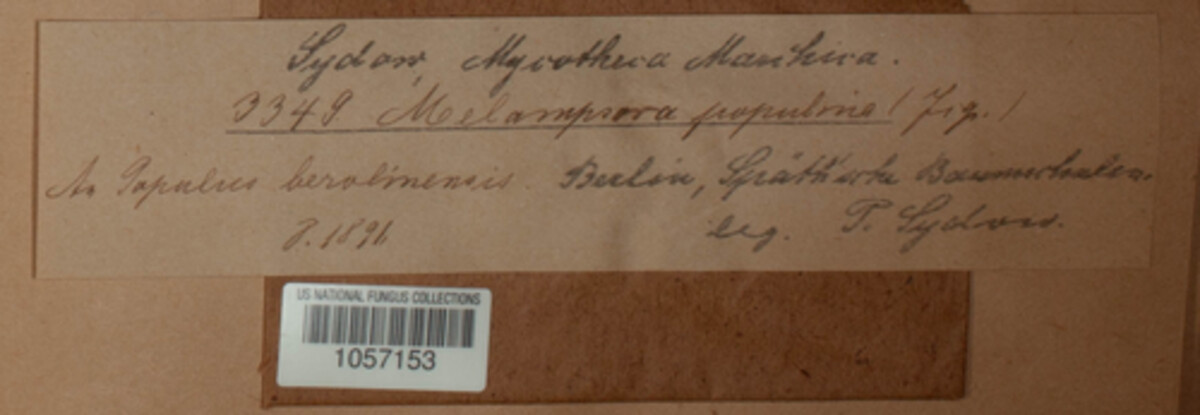 Sydow, Mycotheca Marchica.
3349 Melampsora populina (Jcq.)
An Populus berolinensis. Berlin, Späth'sche Baumschulen.
8. 1891 leg. P. Sydow.
US NATIONAL FUNGUS COLLECTIONS
1057153